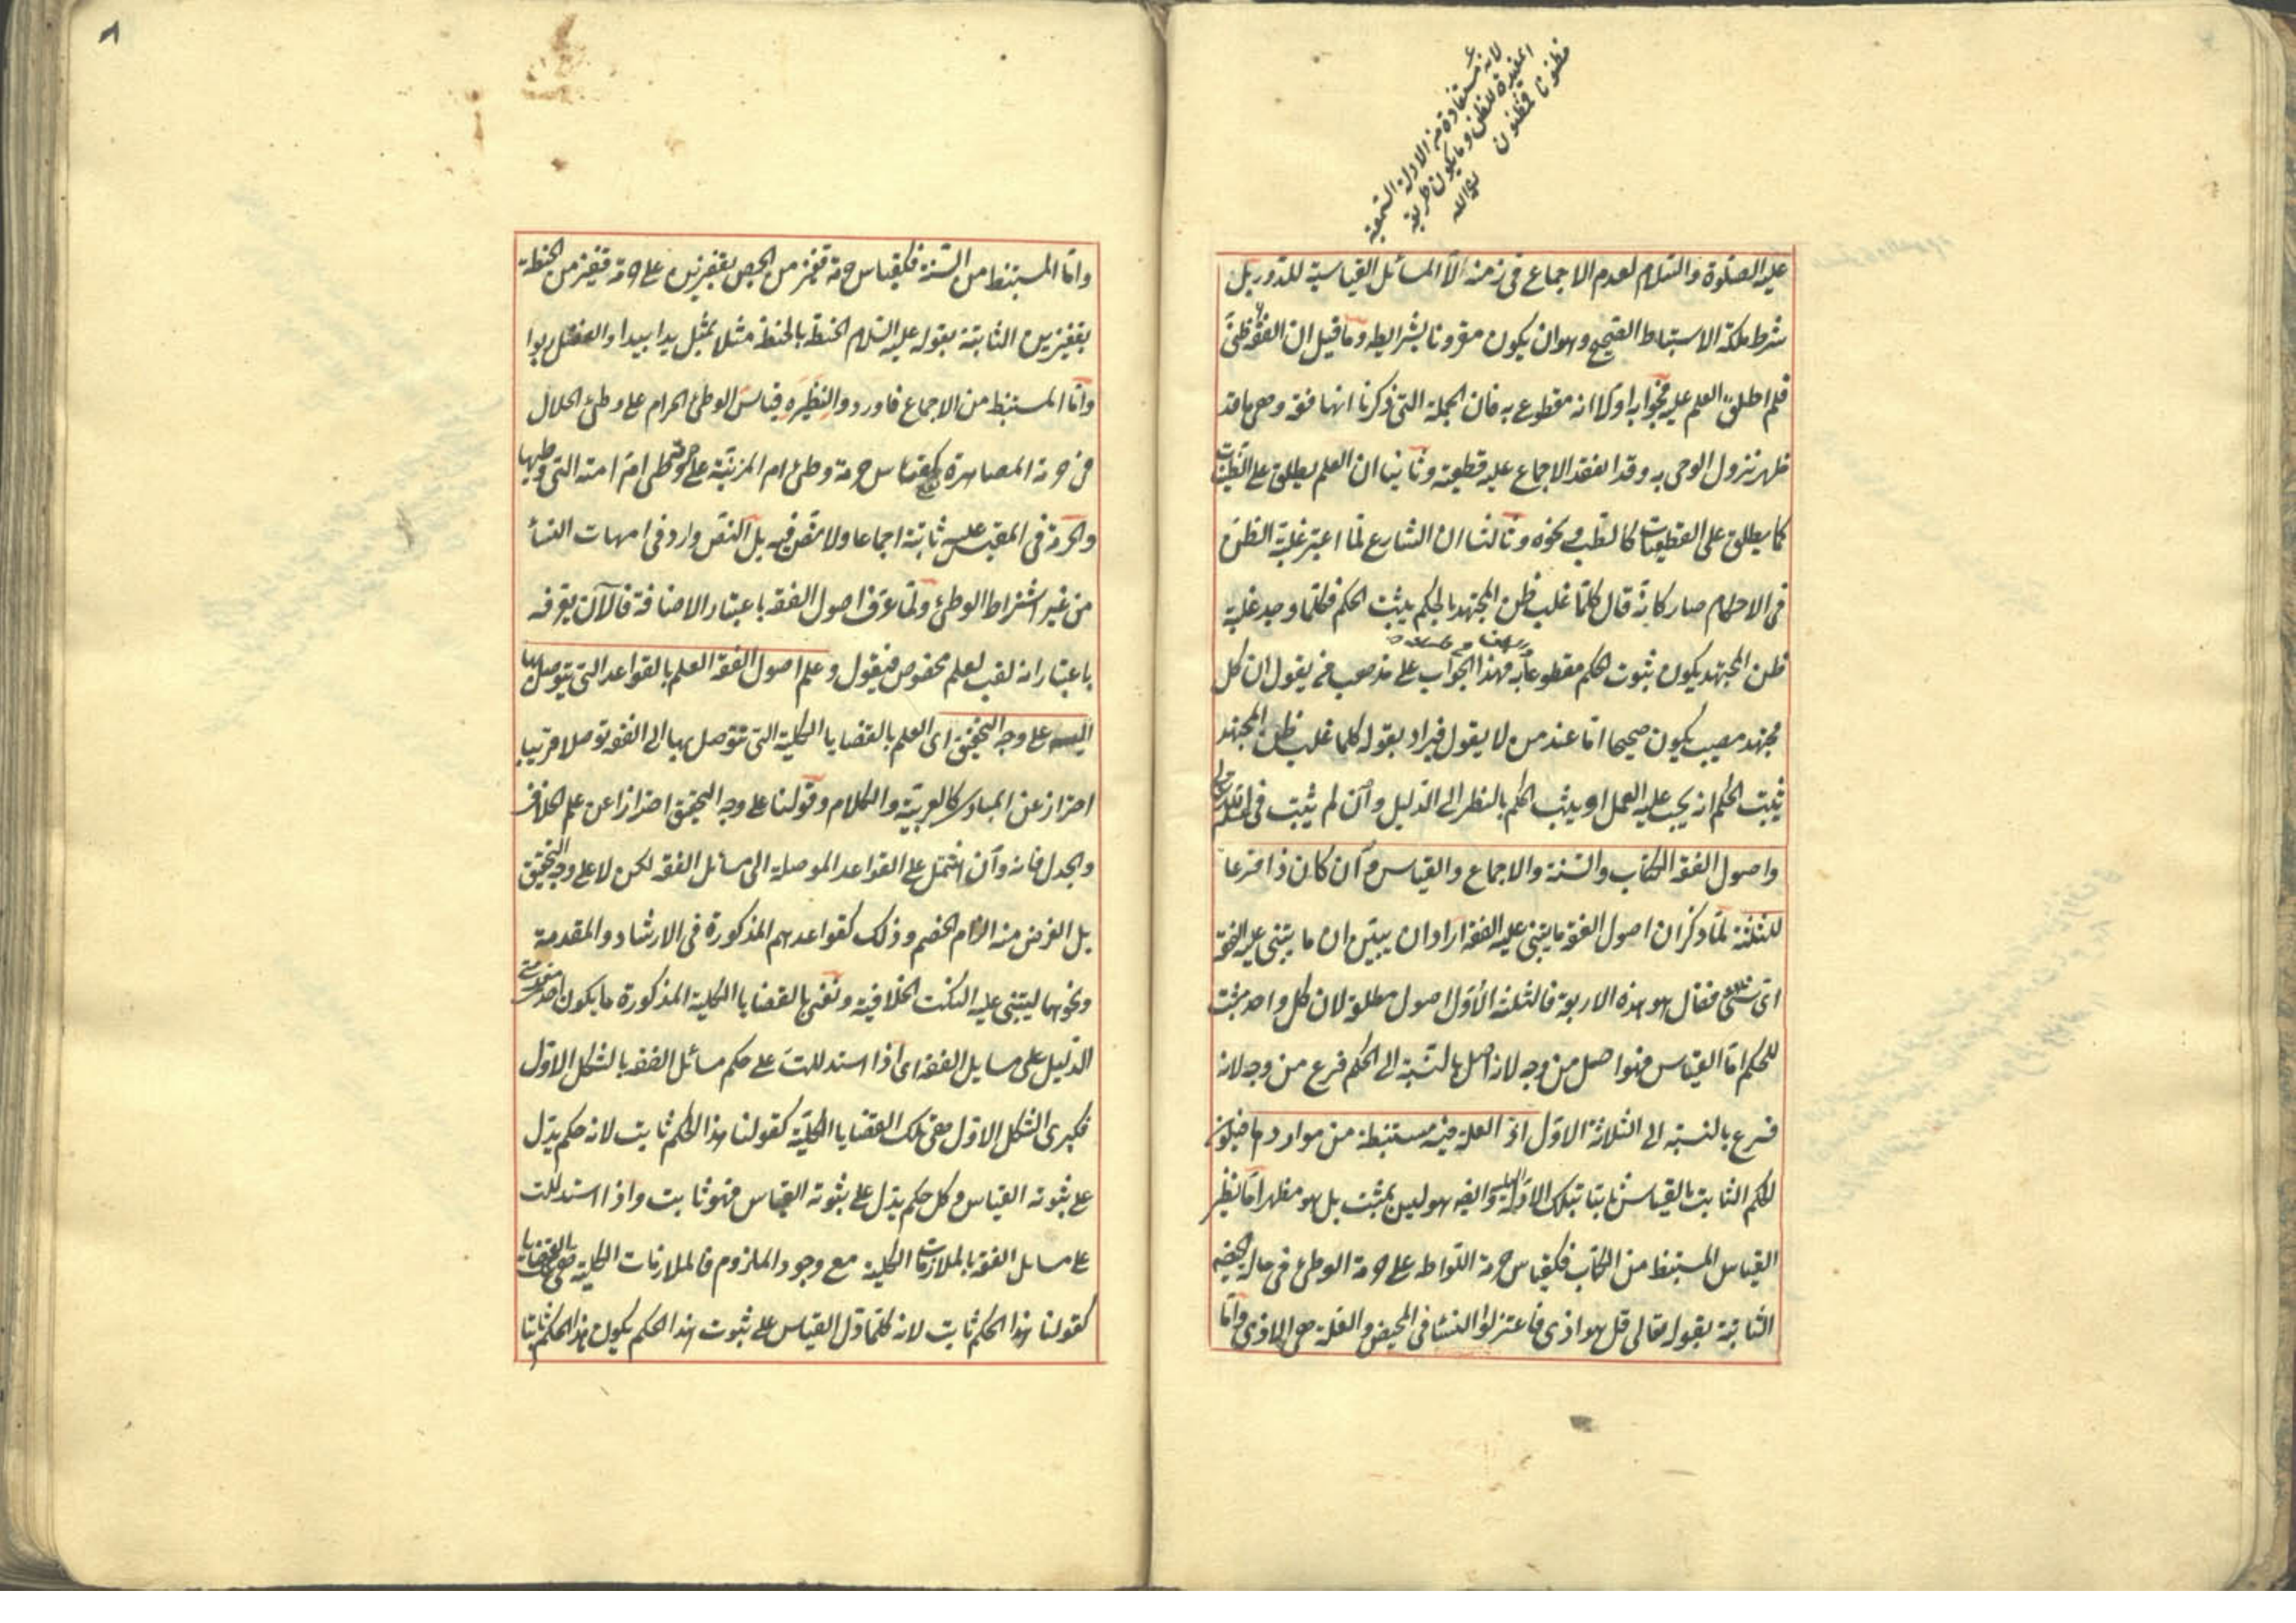 لانه مستفادة من الادلة السمعية
المفيدة للظن وما يكون طريقه
مظنونا فمظنون
عليه الصلوة والسلام لعدم الاجماع فى زمنه الا المسائل القياسية للدور بل
شرط ملكة الاستنباط الصحيح وهو ان يكون مقرونا بشرايطه وما قيل ان الفقه ظنى
فلم اطلق العلم عليه فجوابه اولا انه مقطوع به فان الجملة التى ذكرنا انها فقه وهى ما قد
ظهر نزول الوحى به وقد انعقد الاجماع عليه قطعية وثانيا ان العلم يطلق على الظنيات
كما يطلق على القطعيات كالطب ونحوه وثالثا ان الشارع لما اعتبر غلبة الظن
فى الاحكام صار كانه قال كلما غلب ظن المجتهد بالحكم يثبت الحكم فكلما وجد غلبة
ظن المجتهد يكون ثبوت الحكم مقطوعا به فهذا الجواب على مذهب من يقول ان كل
مجتهد مصيب يكون صحيحا اما عند من لا يقول فيراد بقوله كلما غلب ظن المجتهد
يثبت الحكم انه يجب عليه العمل او يثبت الحكم بالنظر الى الدليل وان لم يثبت فى علم الله
واصول الفقه الكتاب والسنة والاجماع والقياس وان كان ذا فرعا
للثلثة لما ذكر ان اصول الفقه ما يبتنى عليه الفقه اراد ان يبين ان ما يبتنى عليه الفقه
اى شئ هو فقال هو هذه الاربعة فالثلثة الاول اصول مطلقة لان كل واحد مثبت
للحكم اما القياس فهو اصل من وجه لانه اصل بالنسبة الى الحكم فرع من وجه لانه
فرع بالنسبة الى الثلاثة الاول اذ العلة فيه مستنبطة من مواردها فيكون
الحكم الثابت بالقياس ثابتا بتلك الادلة وايضا هو ليس بمثبت بل هو مظهر اما نظير
القياس المستنبط من الكتاب فكقياس حرمة اللواطه على حرمة الوطئ فى حالة الحيض
الثابتة بقوله تعالى قل هو اذى فاعتزلوا النساء فى المحيض والعلة هى الاذى واما
٨
واما المستنبط من السنة فكقياس حرمة قفيز من الجص بقفيزين على حرمة قفيز من الحنطة
بقفيزين الثابتة بقوله عليه السلام الحنطة بالحنطة مثلا بمثل يدا بيد والفضل ربوا
واما المستنبط من الاجماع فاوردوا لنظيره قياس الوطئ الحرام على وطئ الحلال
فى حرمة المصاهرة كقياس حرمة وطئ ام المزنية على حرمة وطئ ام امته التى وطئها
والحرمة فى المقيس عليه ثابتة اجماعا ولا نص فيه بل النص وارد فى امهات النساء
من غير اشتراط الوطئ ولما عرف اصول الفقه باعتبار الاضافة فالآن يعرفه
باعتبار انه لقب لعلم مخصوص فيقول وعلم اصول الفقه العلم بالقواعد التى يتوصل بها
اليه على وجه التحقيق اى العلم بالقضايا الكلية التى يتوصل بها الى الفقه توصلا قريبا
احتراز عن المبادى كالعربية والكلام وقولنا على وجه التحقيق احترازا عن علم الخلاف
والجدل فانه وان اشتمل على القواعد الموصلة الى مسائل الفقه لكن لا على وجه التحقيق
بل الغرض منه الزام الخصم وذلك كقواعدهم المذكورة فى الارشاد والمقدمة
ونحوهما ليبتنى عليه النكت الخلافية ونعنى بالقضايا الكلية المذكورة ما يكون احدى مقدمتى
الدليل على مسايل الفقه اى اذا استدللت على حكم مسائل الفقه بالشكل الاول
فكبرى الشكل الاول هى تلك القضايا الكلية كقولنا هذا الحكم ثابت لانه حكم يدل
على ثبوته القياس وكل حكم يدل على ثبوته القياس فهو ثابت واذا استدللت
على مسايل الفقه بالملازمات الكلية مع وجود الملزوم فالملازمات الكلية هى القضايا
كقولنا هذا الحكم ثابت لانه كلما دل القياس على ثبوت هذا الحكم يكون هذا الحكم ثابتا